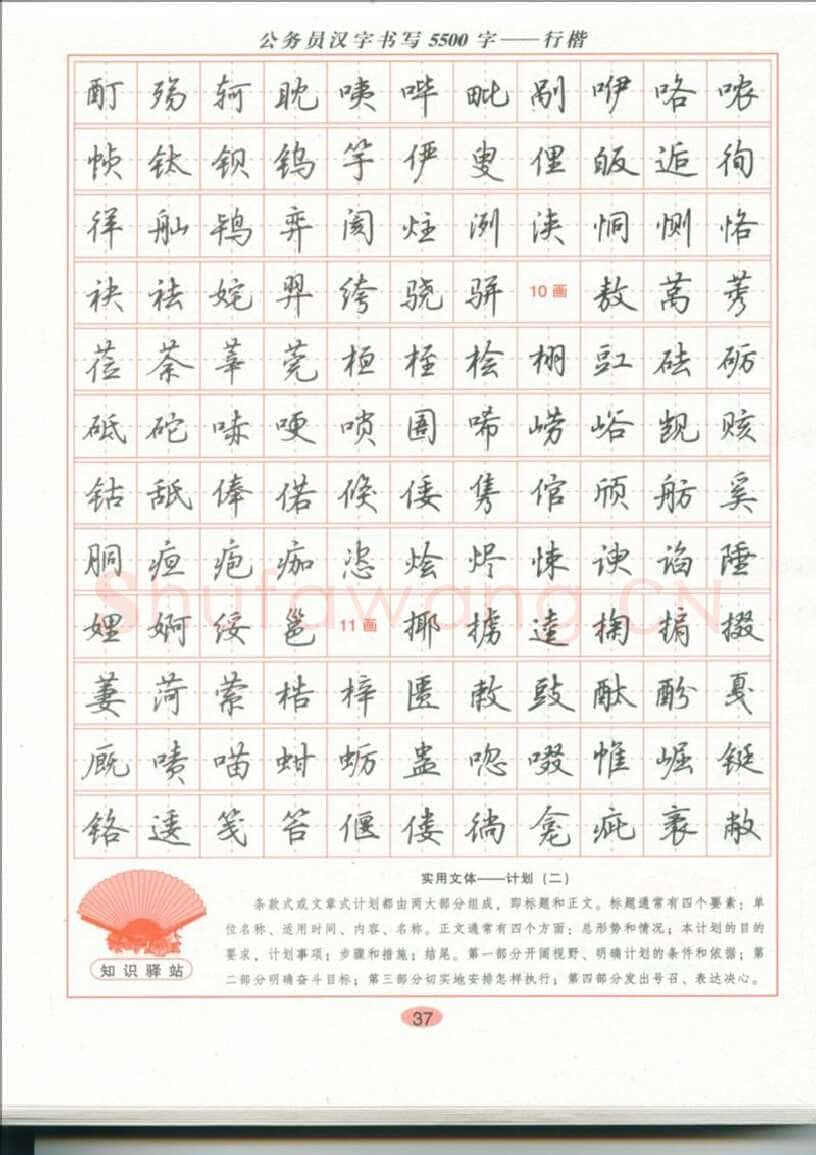 公务员汉字书写5500字——行楷
酊 殇 轲 耽 咦 哔 毗 剐 咿 咯 哝
帧 钛 钡 钨 竽 俨 叟 俚 皈 逅 徇
徉 舢 鸨 弈 阂 炷 洌 浃 恫 恻 恪
袂 祛 姹 羿 绔 骁 骈 10画 敖 莴 莠
莅 荼 莘 莞 桓 桎 桧 栩 豇 砝 砺
砥 砣 哧 哽 唢 圄 唏 崂 峪 觊 赅
钴 舐 俸 偌 倏 倭 隽 倌 颀 舫 奚
胴 疸 疱 痂 恣 烩 烬 悚 谀 谄 陲
娌 婀 绥 邕 11画 揶 掳 逵 掬 掮 掇
萋 菏 萦 梏 梓 匮 敕 豉 酞 酚 戛
厩 啧 喵 蚶 蛎 蛊 唿 啜 帷 崛 铤
铬 逶 笺 笤 偃 偻 徜 龛 疵 衮 敝
Shufawang.CN
实用文体——计划（二）
条款式或文章式计划都由两大部分组成，即标题和正文。标题通常有四个要素：单
位名称、适用时间、内容、名称。正文通常有四个方面：总形势和情况；本计划的目的
要求，计划事项；步骤和措施；结尾。第一部分开阔视野、明确计划的条件和依据；第
二部分明确奋斗目标；第三部分切实地安排怎样执行；第四部分发出号召、表达决心。
知识驿站
37